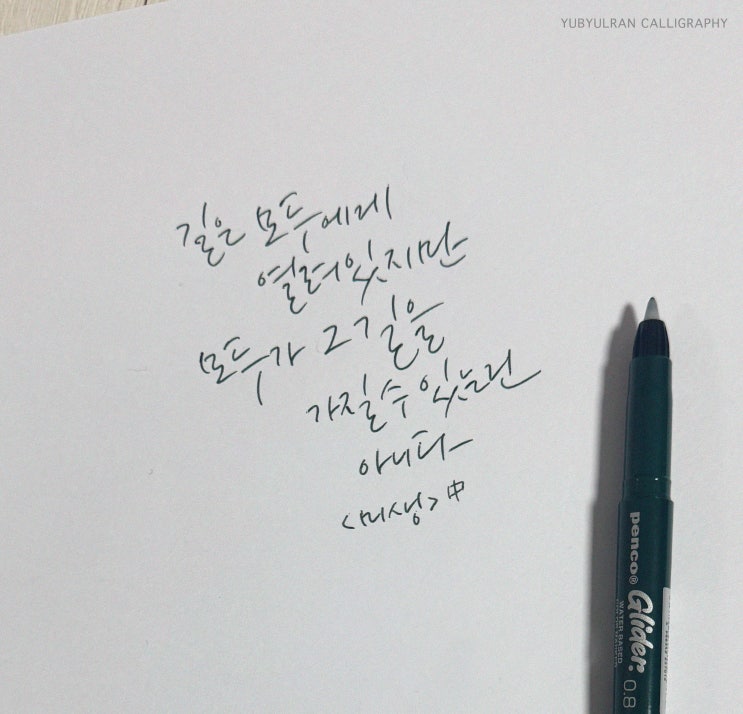 YUBYULRAN CALLIGRAPHY
길은 모두에게
열려있지만
모두가 그 길을
가질수 있는건
아니다
<미생> 中
penco® Glider.
WATER BASED
0.8